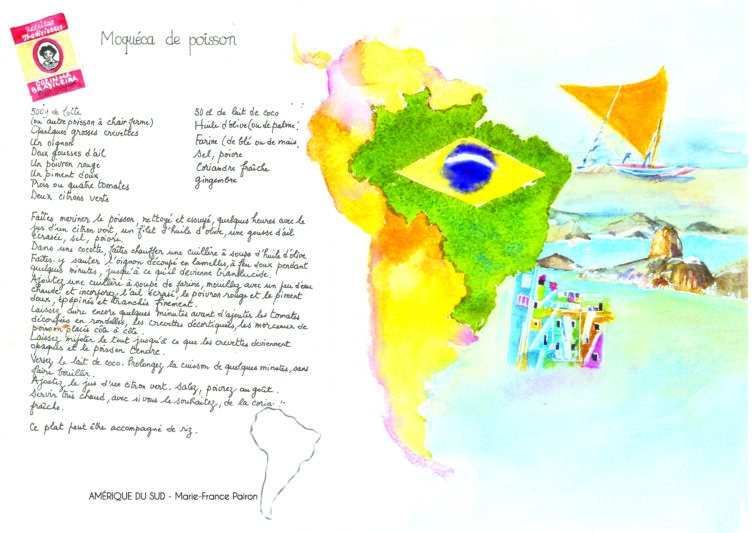 Receitas
Tradicionais
COZINHA
BRASILEIRA
Moquéca de poisson
500g de lotte
(ou autre poisson à chair ferme)
Quelques grosses crevettes
Un oignon
Deux gousses d'ail
Un poivron rouge
Un piment doux
Trois ou quatre tomates
Deux citrons verts
50 cl de lait de coco
Huile d'olive (ou de palme)
Farine (de blé ou de maïs)
Sel, poivre
Coriandre fraîche
gingembre
Faites mariner le poisson, nettoyé et essuyé, quelques heures avec le
jus d'un citron vert, un filet d'huile d'olive, une gousse d'ail
écrasée, sel, poivre.
Dans une cocotte, faites chauffer une cuillère à soupe d'huile d'olive
Faites-y sauter l'oignon découpé en lamelles, à feu doux pendant
quelques minutes, jusqu'à ce qu'il devienne translucide.
Ajoutez une cuillère à soupe de farine, mouillez avec un peu d'eau
chaude et incorporez l'ail écrasé, le poivron rouge et le piment
doux, épépinés et tranchés finement.
Laissez cuire encore quelques minutes avant d'ajouter les tomates
découpées en rondelles, les crevettes décortiquées, les morceaux de
poisson placés côte à côte.
Laissez mijoter le tout jusqu'à ce que les crevettes deviennent
opaques et le poisson tendre.
Versez le lait de coco. Prolongez la cuisson de quelques minutes, sans
faire bouillir.
Ajoutez le jus d'un citron vert. Salez, poivrez au goût.
Servir très chaud, avec si vous le souhaitez, de la coria
fraîche.
Ce plat peut être accompagné de riz.
AMÉRIQUE DU SUD - Marie-France Pairon